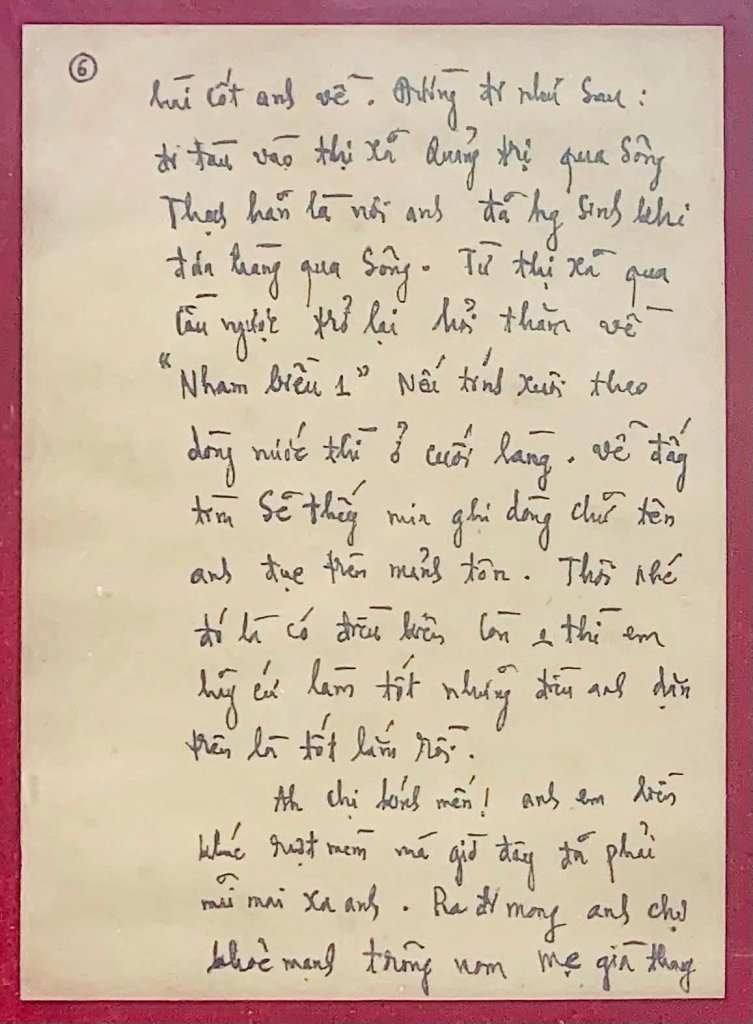 6
hài cốt anh về. Đường đi như sau:
đi tàu vào thị xã Quảng trị qua Sông
Thạch hãn là nơi anh đã hy sinh khi
đưa hàng qua sông. Từ thị xã qua
cầu ngược trở lại hỏi thăm về
"Nham biều 1" Nếu tính xuôi theo
dòng nước thì ở cuối làng. về đấy
tìm sẽ thấy mìn ghi dòng chữ tên
anh đục trên mảnh tôn. Thôi nhé
đó là có điều kiện còn 1 thì em
hãy cứ làm tốt những điều anh dặn
trên là tốt lắm rồi.
Anh chị kính mến! anh em liền
khúc ruột mềm mà giờ đây đã phải
mãi mãi xa anh. Ra đi mong anh chị
khoẻ mạnh trông nom mẹ già thay